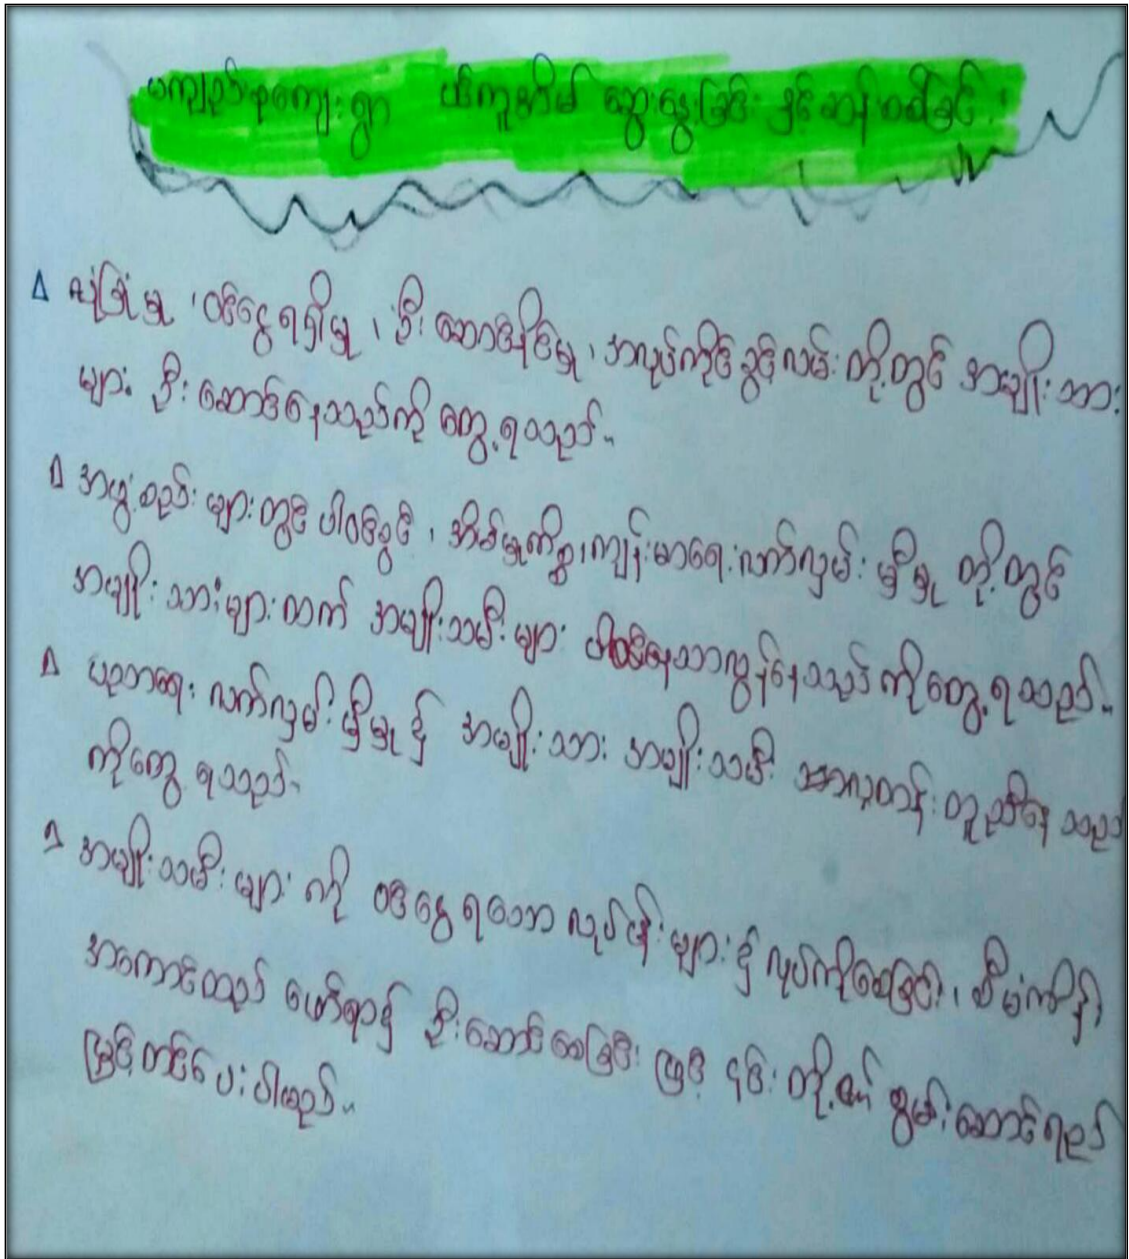 မကျည်းစုကျေးရွာ ထဲကူအိမ် ဆွေးနွေးခြင်း နှင့် ဆန်းစစ်ခြင်း၊
လုံခြုံမှု ၊ ဝင်ငွေရရှိမှု ၊ ဦးဆောင်နိုင်မှု ၊ အလုပ်ကိုင်ခွင့်လမ်း တို့တွင် အမျိုးသား
များ ဦးဆောင်နေသည်ကို တွေ့ရသည်။
အဖွဲ့စည်း များတွင် ပါဝင်ခွင့် ၊ အိမ်မှုကိစ္စ ၊ ကျန်းမာရေးလက်လှမ်း မှီမှု တို့တွင်
အမျိုးသားများထက် အမျိုးသမီးများ ပါဝင်နေသာလွန်နေသည်ကိုတွေ့ရသည်။
ပညာရေး လက်လှမ်းမှီမှု ၌ အမျိုးသား အမျိုးသမီး အလှတန်းတူညီနေ သည်
ကိုတွေ့ ရသည်။
အမျိုးသမီးများ ကို ဝင်ငွေရသော လုပ်ငန်းများ၌ လုပ်ကိုင်စေခြင်း၊ စီမံကိန်း
အကောင်ထည် ဖော်ရာ၌ ဦးဆောင်စေခြင်း ဖြင့် ၎င်းတို့၏ စွမ်းဆောင်ရည်
မြှင့်တင်ပေးပါမည်။